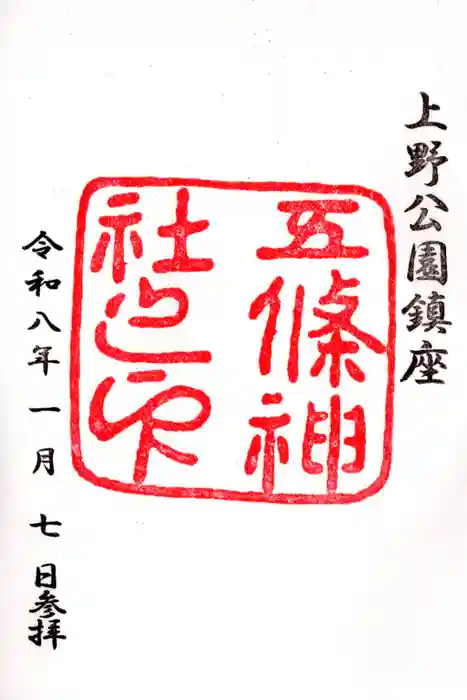 上野公園鎮座
五條神
社之印
令和八年一月七日参拝